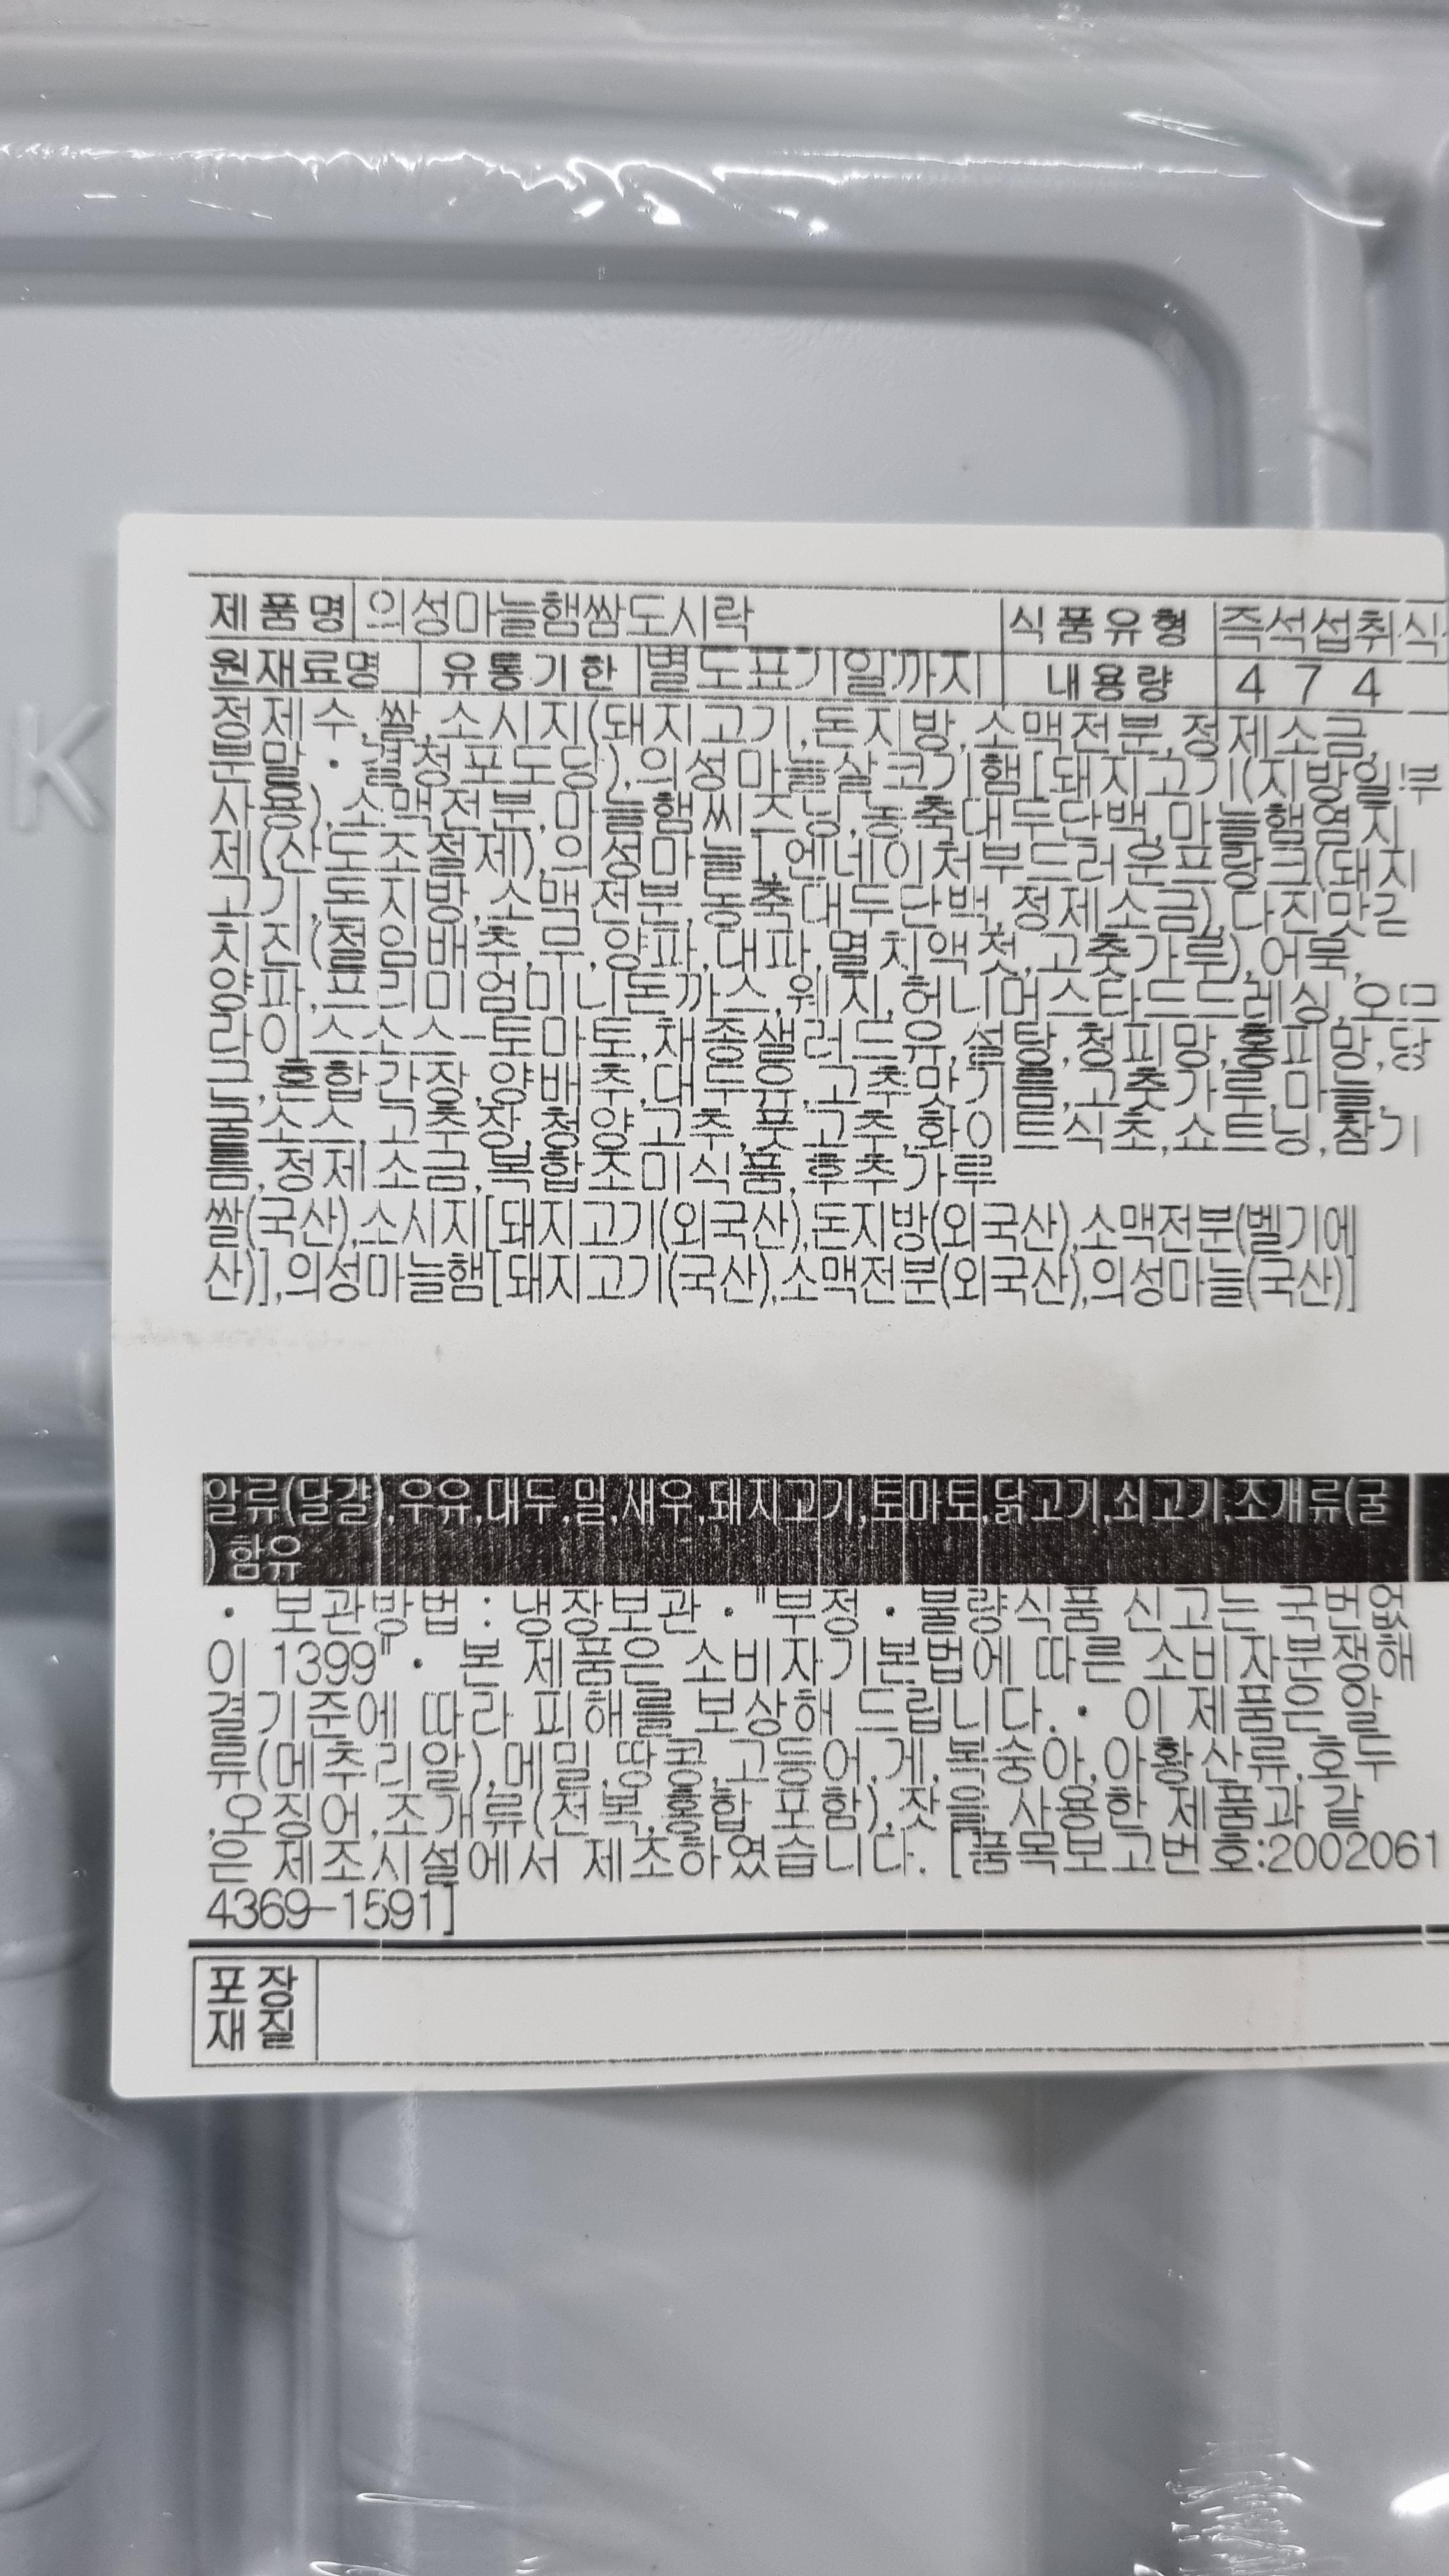 K
제품명 의성마늘햄쌈도시락 식품유형 즉석섭취식
원재료명 유통기한 별도표기일까지 내용량 474
정제수,쌀,소시지(돼지고기,돈지방,소맥전분,정제소금,
분말·결정포도당),의성마늘살코기햄[돼지고기(지방일부
사용),소맥전분,마늘햄씨즈닝,농축대두단백,마늘햄염지
제(산도조절제),의성마늘],엔네이처부드러운프랑크(돼지
고기,돈지방,소맥전분,농축대두단백,정제소금),다진맛김
치진(절임배추,무,양파,대파,멸치액젓,고춧가루),어묵,
양파,프리미엄미니돈까스,웨지,허니머스타드드레싱,오므
라이스소스-토마토,채종샐러드유,설탕,청피망,홍피망,당
근,혼합간장,양배추,대두유,고추맛기름,고춧가루,마늘,
굴소스,고추장,청양고추,풋고추,화이트식초,쇼트닝,참기
름,정제소금,복합조미식품,후추가루
쌀(국산),소시지[돼지고기(외국산),돈지방(외국산),소맥전분(벨기에
산)],의성마늘햄[돼지고기(국산),소맥전분(외국산),의성마늘(국산)]
알류(달걀),우유,대두,밀,새우,돼지고기,토마토,닭고기,쇠고기,조개류(굴
)함유
· 보관방법 : 냉장보관·"부정·불량식품 신고는 국번없
이 1399"· 본 제품은 소비자기본법에 따른 소비자분쟁해
결기준에 따라 피해를 보상해 드립니다.· 이 제품은 알
류(메추리알),메밀,땅콩,고등어,게,복숭아,아황산류,호두
,오징어,조개류(전복,홍합 포함),잣을 사용한 제품과 같
은 제조시설에서 제조하였습니다. [품목보고번호:2002061
4369-1591]
포장
재질